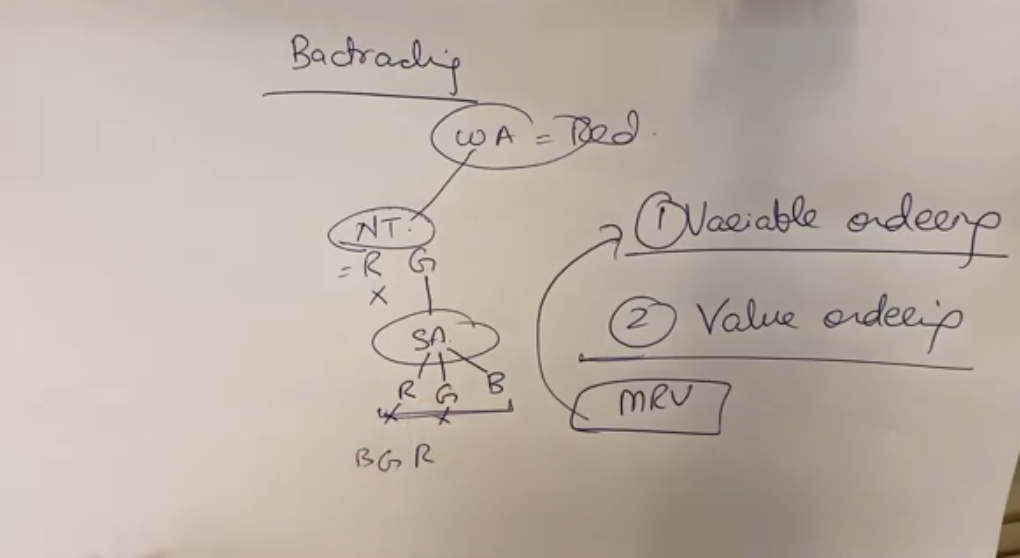 Bactrackig
WA = Red.
NT.
= R G
X
SA.
R G B
x x
B G R
① Variable ordering
② Value ordering
MRV